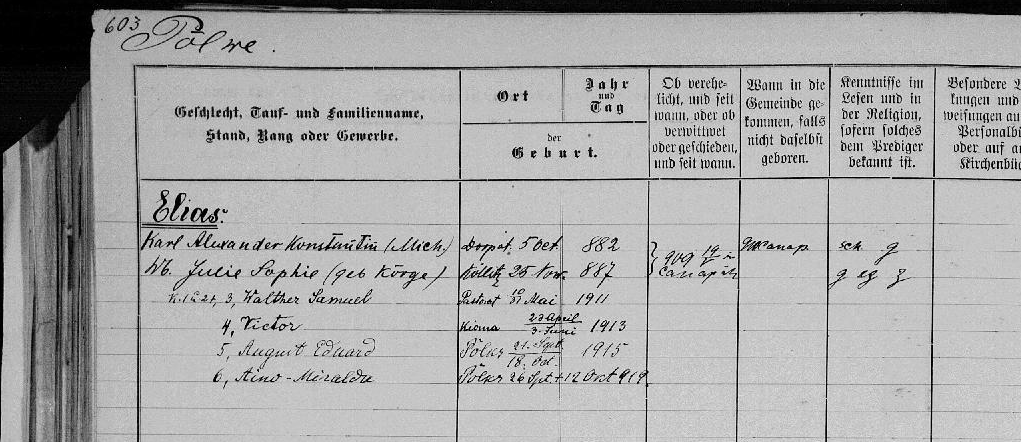 603
Pölwe.
Geschlecht, Tauf- und Familienname,
Stand, Rang oder Gewerbe.
Ort
Jahr
und
Tag
der
Geburt.
Ob verehe-
licht, und seit
wann, oder ob
verwittwet
oder geschieden,
und seit wann.
Wann in die
Gemeinde ge-
kommen, falls
nicht daselbst
geboren.
Kenntnisse im
Lesen und in
der Religion,
sofern solches
dem Prediger
bekannt ist.
Besondere
kungen und
weisungen au
Personalbi
oder auf a
Kirchenbüc
Elias.
Karl Alexander Konstantin (Mich.) Dorpat. 5 Oct. 882 909 19 sch. g
Wb. Julie Sophie (geb Körge) 25 Nov. 887 g eg g
3, Walther Samuel Pastorat Mai 1911
4, Victor Kioma 23 April
3. Juni 1913
5, August Eduard Pölks 21. Spt.
18. Oct. 1915
6, Aino-Miralda Pölks 26 Spt. + 12 Oct 919.